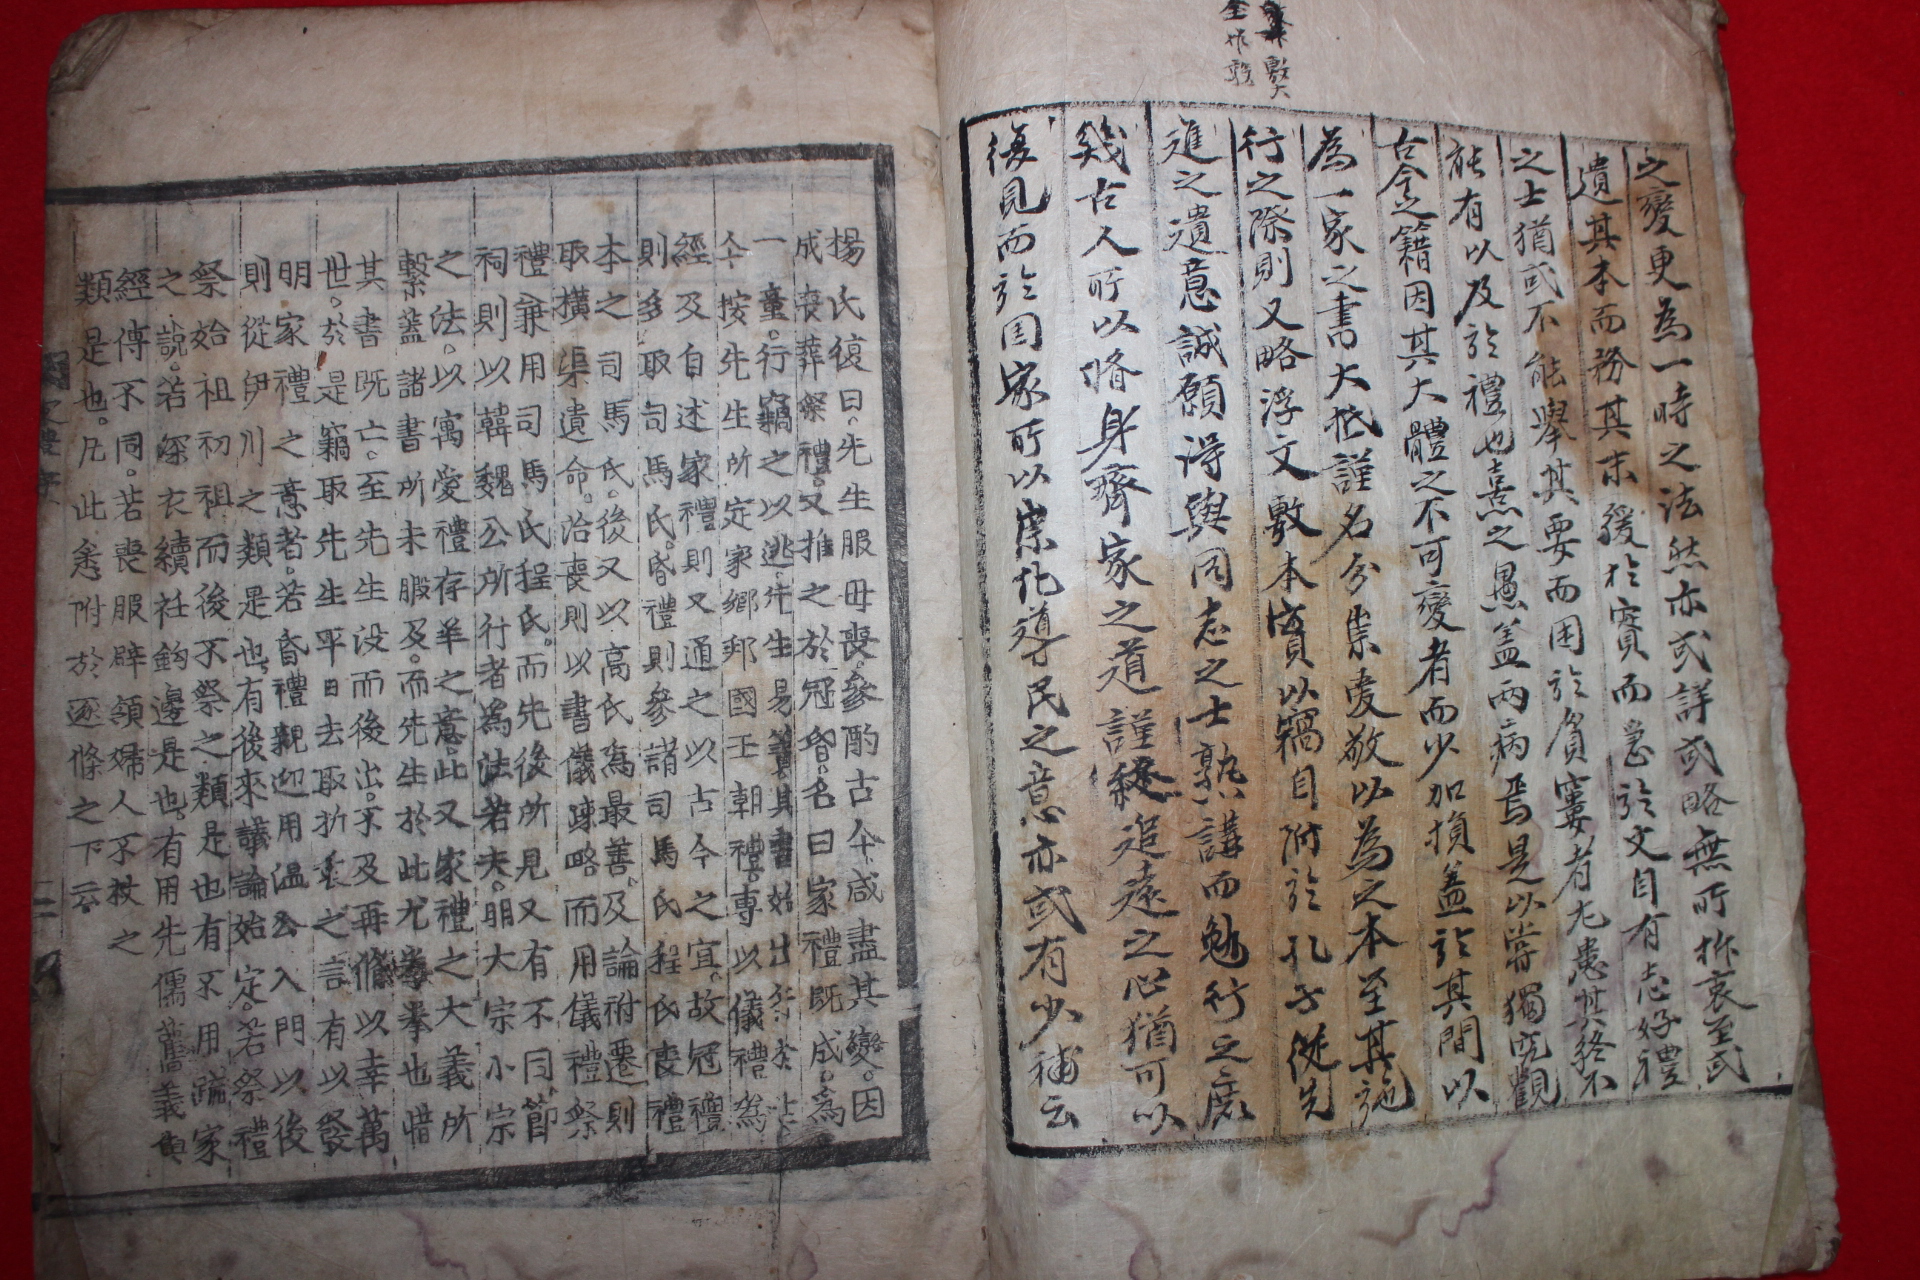 之變更為一時之法然亦或詳或略無所折衷至或
遺其本而務其末緩於實而急於文自有志好禮
之士猶或不能擧其要而困於貧窶者尤患其終不
能有以及於禮也熹之愚盖兩病焉是以嘗獨究觀
古今之籍因其大體之不可變者而少加損益於其間以
為一家之書大抵謹名分崇愛敬以為之本至其施
行之際則又略浮文敷本實以竊自附於孔子從先
進之遺意誠願得與同志之士熟講而勉行之庶
幾古人所以脩身齊家之道謹終追遠之心猶可以
復見而於国家所以崇化導民之意亦或有少補云
楊氏復曰先生服母喪參酌古今咸盡其變因
成喪葬祭禮又推之於冠昏名曰家禮既成為
一童行竊之以逃先生易簀其書始出
今按先生所定家鄉邦國王朝禮專以儀禮為
經及自述家禮則又通之以古今之宜故冠禮
則多取司馬氏昏禮則參諸司馬氏程氏喪禮
本之司馬氏後又以高氏為最善及論祔遷則
取橫渠遺命治喪則以書儀疎略而用儀禮祭
禮兼用司馬氏程氏而先後所見又有不同節
祠則以韓魏公所行者為法若夫明大宗小宗
之法以寓愛禮存羊之意此又家禮之大義所
繫蓋諸書所未暇及而先生於此尤拳拳也惜
其書既亡至先生没而後出不及再脩以幸萬
世於是竊取先生平日去取折衷之言有以發
明家禮之意者若昏禮親迎用温公入門以後
則從伊川之類是也有後來議論始定若祭禮
祭始祖初祖而後不祭之類是也有不用疏家
之說若深衣續衽鉤邊是也有用先儒舊義與
經傳不同若喪服辟領婦人不杖之
類是也凡此悉附於逐條之下云